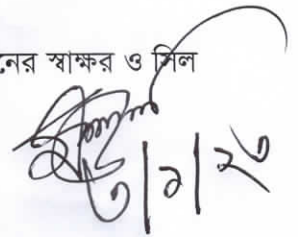 নের স্বাক্ষর ও সিল
৩|১|২৩